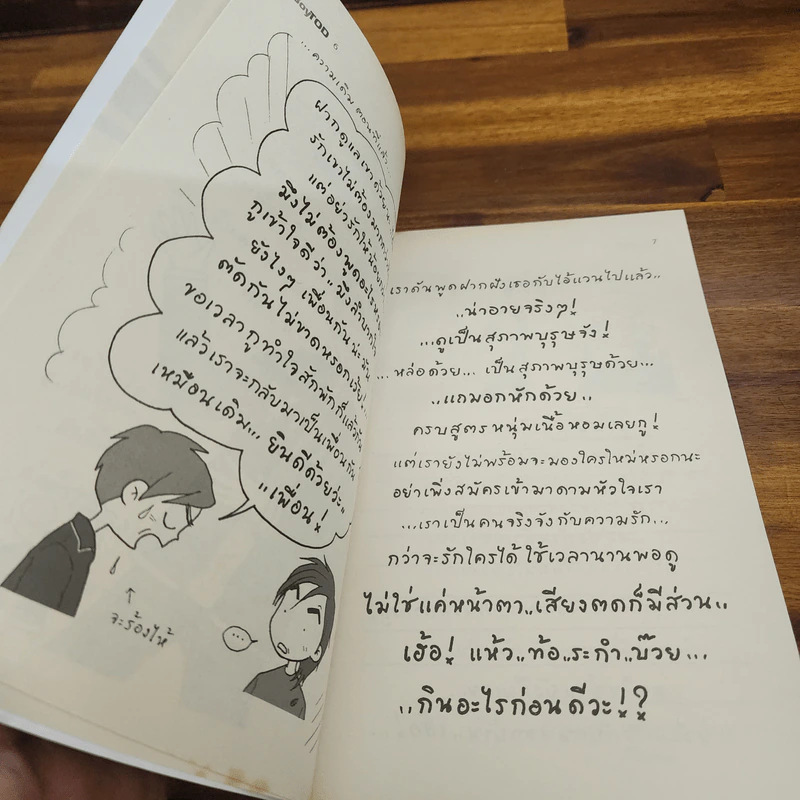 BoyTOD
6
...ความเดิม ตอนที่แล้ว...
ฝากดูแลเขาด้วย
รักเขาไม่ต้องมาก
แต่อย่ารักให้น้อย
มึงไม่ต้องพูดอะไร
กูเข้าใจดีว่า.. มึงลำบากใจ
ยังไงๆ เพื่อนกันน่ะมัน
ตัดกันไม่ขาดหรอกเว้ย!
ขอเวลากูทำใจสักพักก็แล้วกัน
แล้วเราจะกลับมาเป็นเพื่อนกัน
เหมือนเดิม... ยินดีด้วยว่ะ
..เพื่อน!
จะร้องไห้
...
7
เราดันพูดฝากฝังเธอกับไอ้แวนไปแล้ว..
..น่าอายจริงๆ!
...ดูเป็นสุภาพบุรุษจัง!
...หล่อด้วย... เป็นสุภาพบุรุษด้วย...
..แถมอกหักด้วย..
ครบสูตรหนุ่มเนื้อหอมเลยกู!
แต่เรายังไม่พร้อมจะมองใครใหม่หรอกนะ
อย่าเพิ่งสมัครเข้ามาดามหัวใจเรา
...เราเป็นคนจริงจังกับความรัก...
กว่าจะรักใครได้ ใช้เวลานานพอดู
ไม่ใช่แค่หน้าตา..เสียงตดก็มีส่วน..
เฮ้อ! แห้ว..ท้อ..ระกำ..บ๊วย...
..กินอะไรก่อนดีวะ!?